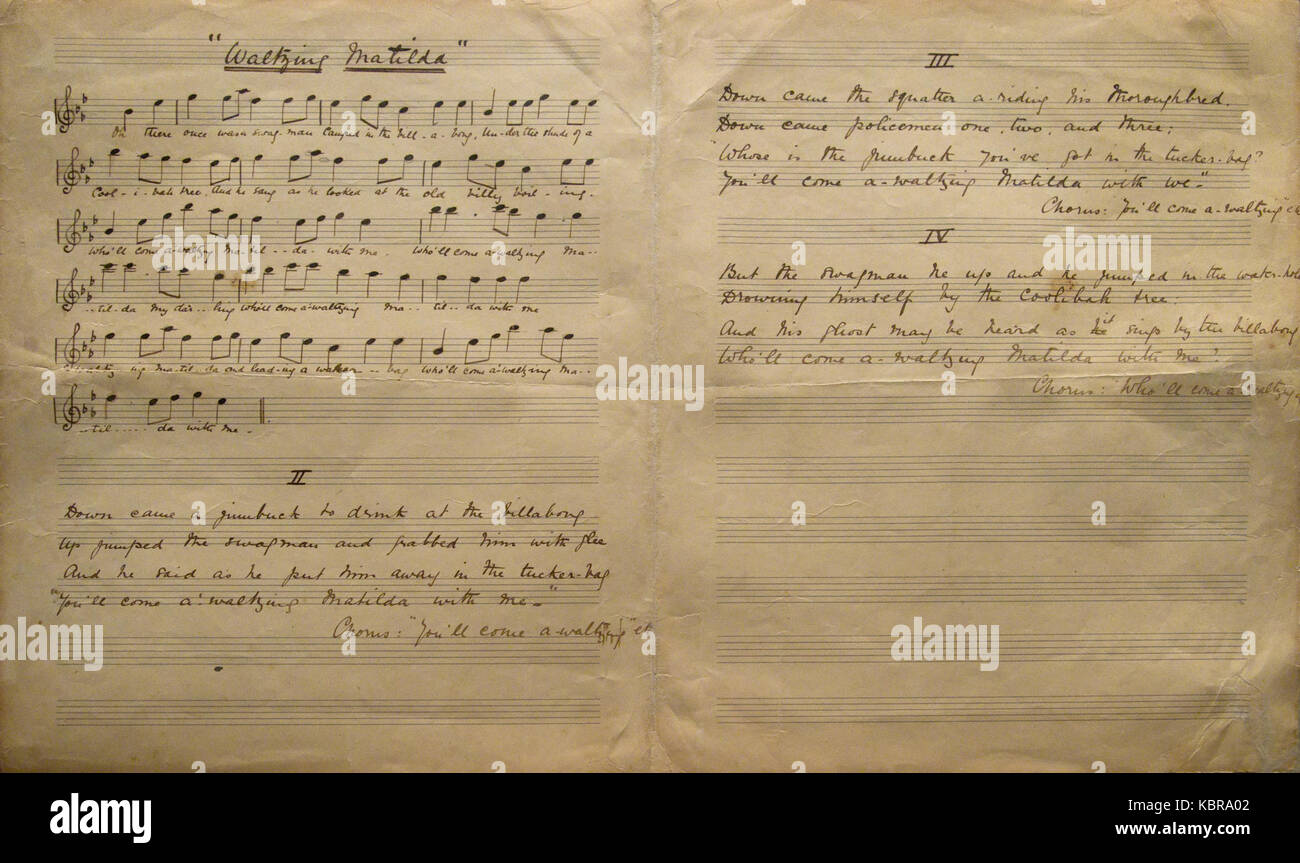 "Waltzing Matilda"
Oh there once was a swag-man camped in the bill-a-bong, Un-der the shade of a
Cool-i-bah tree, And he sang as he looked at the old billy boil-ing-
Who'll come a-waltzing Ma-til--da- with me. Who'll come a-waltzing Ma--
--til-da my dar--ling who'll come a-waltzing ma--til--da with me
Waltz-ing Ma-til-da and lead-ing a water--bag Who'll come a-waltzing Ma--
--til-----da with me-
II
Down came a jumbuck to drink at the billabong
Up jumped the swagman and grabbed him with glee
And he said as he put him away in the tucker-bag
"You'll come a-waltzing Matilda with me-"
Chorus: "You'll come a-waltzing" et
III
Down came the squatter a-riding his thoroughbred.
Down came policemen one, two, and three;
"Whose is the jumbuck you've got in the tucker-bag?
You'll come a-waltzing Matilda with we-"
Chorus: You'll come a-waltzing"
IV
But the swagman he up and he jumped in the water-hole
Drowning himself by the Coolibah tree:
And his ghost may be heard as it sings by the billabong
Who'll come a-waltzing Matilda with me?
Chorus: "Who'll come a-waltzing
alamy
a
alamy
Image ID: KBRA02
www.alamy.com